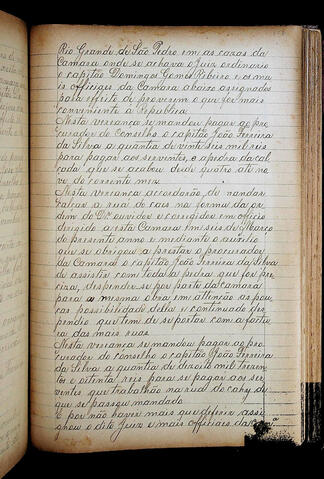 Rio Grande de São Pedro em as cazas da
Camara onde se achava o Juiz ordinario
o capitão Domingos Gomes Ribeiro e os ma
is officiaes da Camara abaixo assignados
para effeito de proverem o que for mais
conveniente a Republica.
Nesta vereança se mandou pagar ao pro
curador do Conselho o capitão João Ferreira
da Silva a quantia de vinte seis mil reis
para pagar aos serventes, e a pedra da cal
cada que se acabou desde quatro ate no
ve do corrente mez.
Nesta vereança accordarão de mandar
calcar a rua do cais na forma da or
dem do Dr ouvidor e coregidor em officio
dirigido a esta Camara em seis de Março
do presente anno e mediante o auxilio
que se obrigou a prestar o procurador
da Camara o capitão João Ferreira da Silva
de assistir com toda a pedra que for pre
ciza, despender-se por parte da camara
para a mesma obra em attencão as pou
cas possibilidade della e continuado des
pendio que tem de se portar com a factu
ra das mais ruas.
Nesta vereança se mandou pagar ao pro
curador do conselho o capitão João Ferreira
da Silva a quantia de dezoito mil trezen
tos e oitenta reis para se pagar aos ser
ventes que trabalhão na rua do cahy de
que se passou mandado.
E por não haver mais que deferir assi
gnou o dito Juiz e mais officiaes da